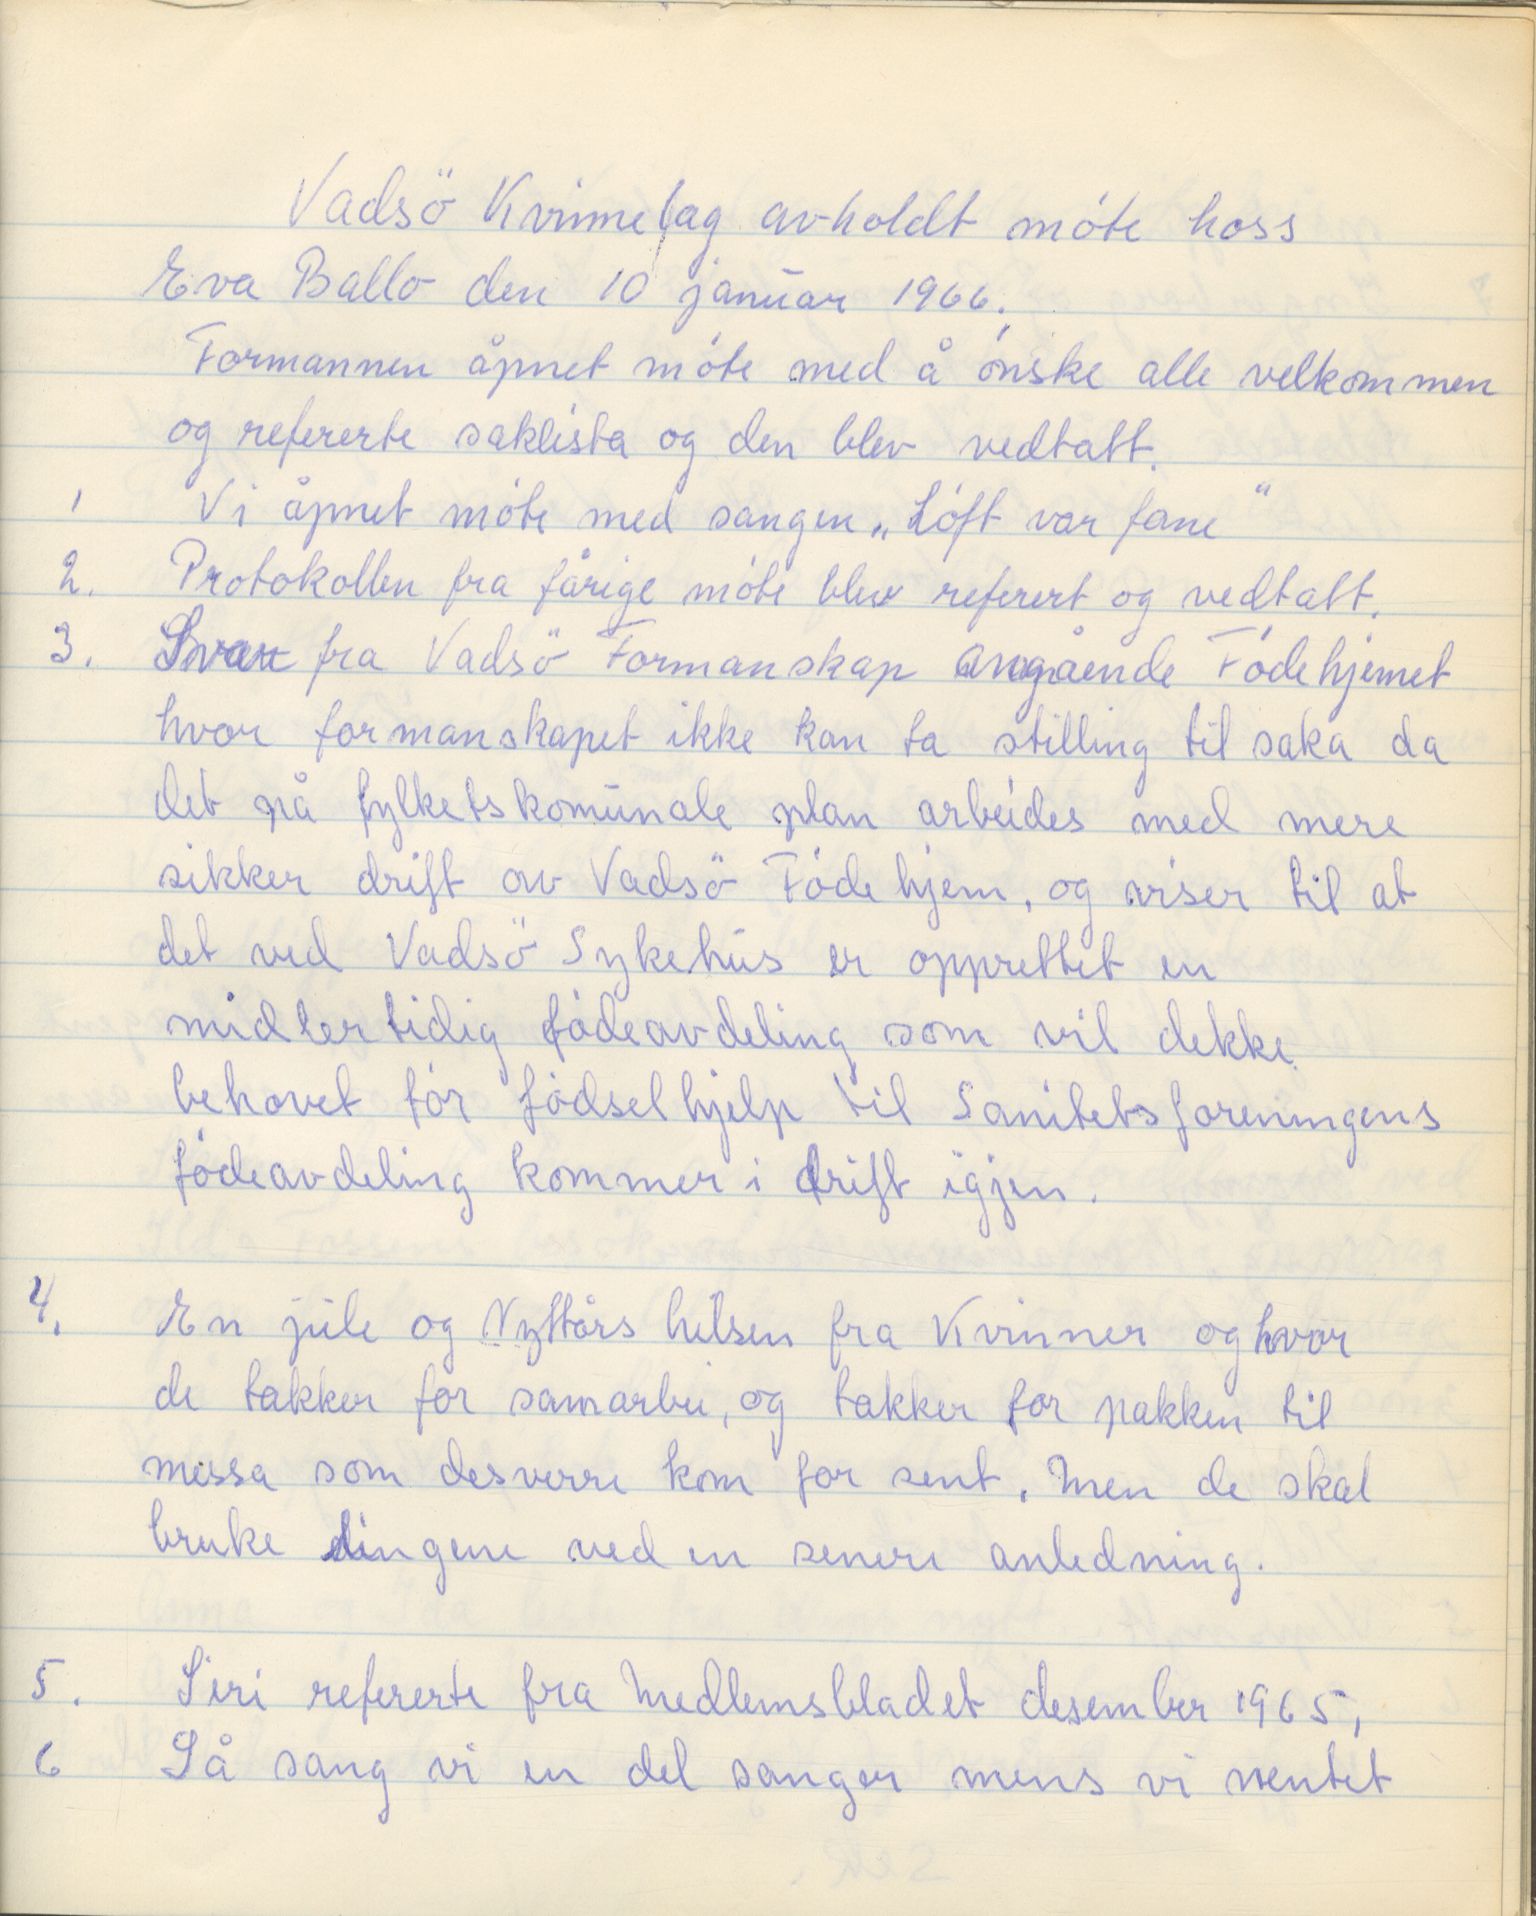 Vadsö Kvinnelag avholdt móte hoss
Eva Ballo den 10 januar 1966.
Formannen åpnet móte med å ónske alle velkommen
og refererte saklista og den blev vedtatt.
1 Vi åpnet móte med sangen „Lóft vor fane"
2. Protokollen fra fårige móte blev referert og vedtatt.
3. Svar fra Vadsö Formanskap angående Fódehjemet
hvor formanskapet ikke kan ta stilling til saka da
det på fylketskomunale plan arbeides med mere
sikker drift av Vadsö Fódehjem, og viser til at
det ved Vadsö Sykehus er opprettet en
midlertidig fódeavdeling som vil dekke
behovet fór fódselhjelp til Sanitetsforeningens
fódeavdeling kommer i drift igjen.
4. En jule og Nyttårs helsen fra Kvinner og hvor
de takker for samarbei, og takker for pakken til
messa som desverre kom for sent. Men de skal
bruke dingene ved en senere anledning.
5. Siri refererte fra Medlemsbladet desember 1965,
6 Så sang vi en del sanger mens vi ventet